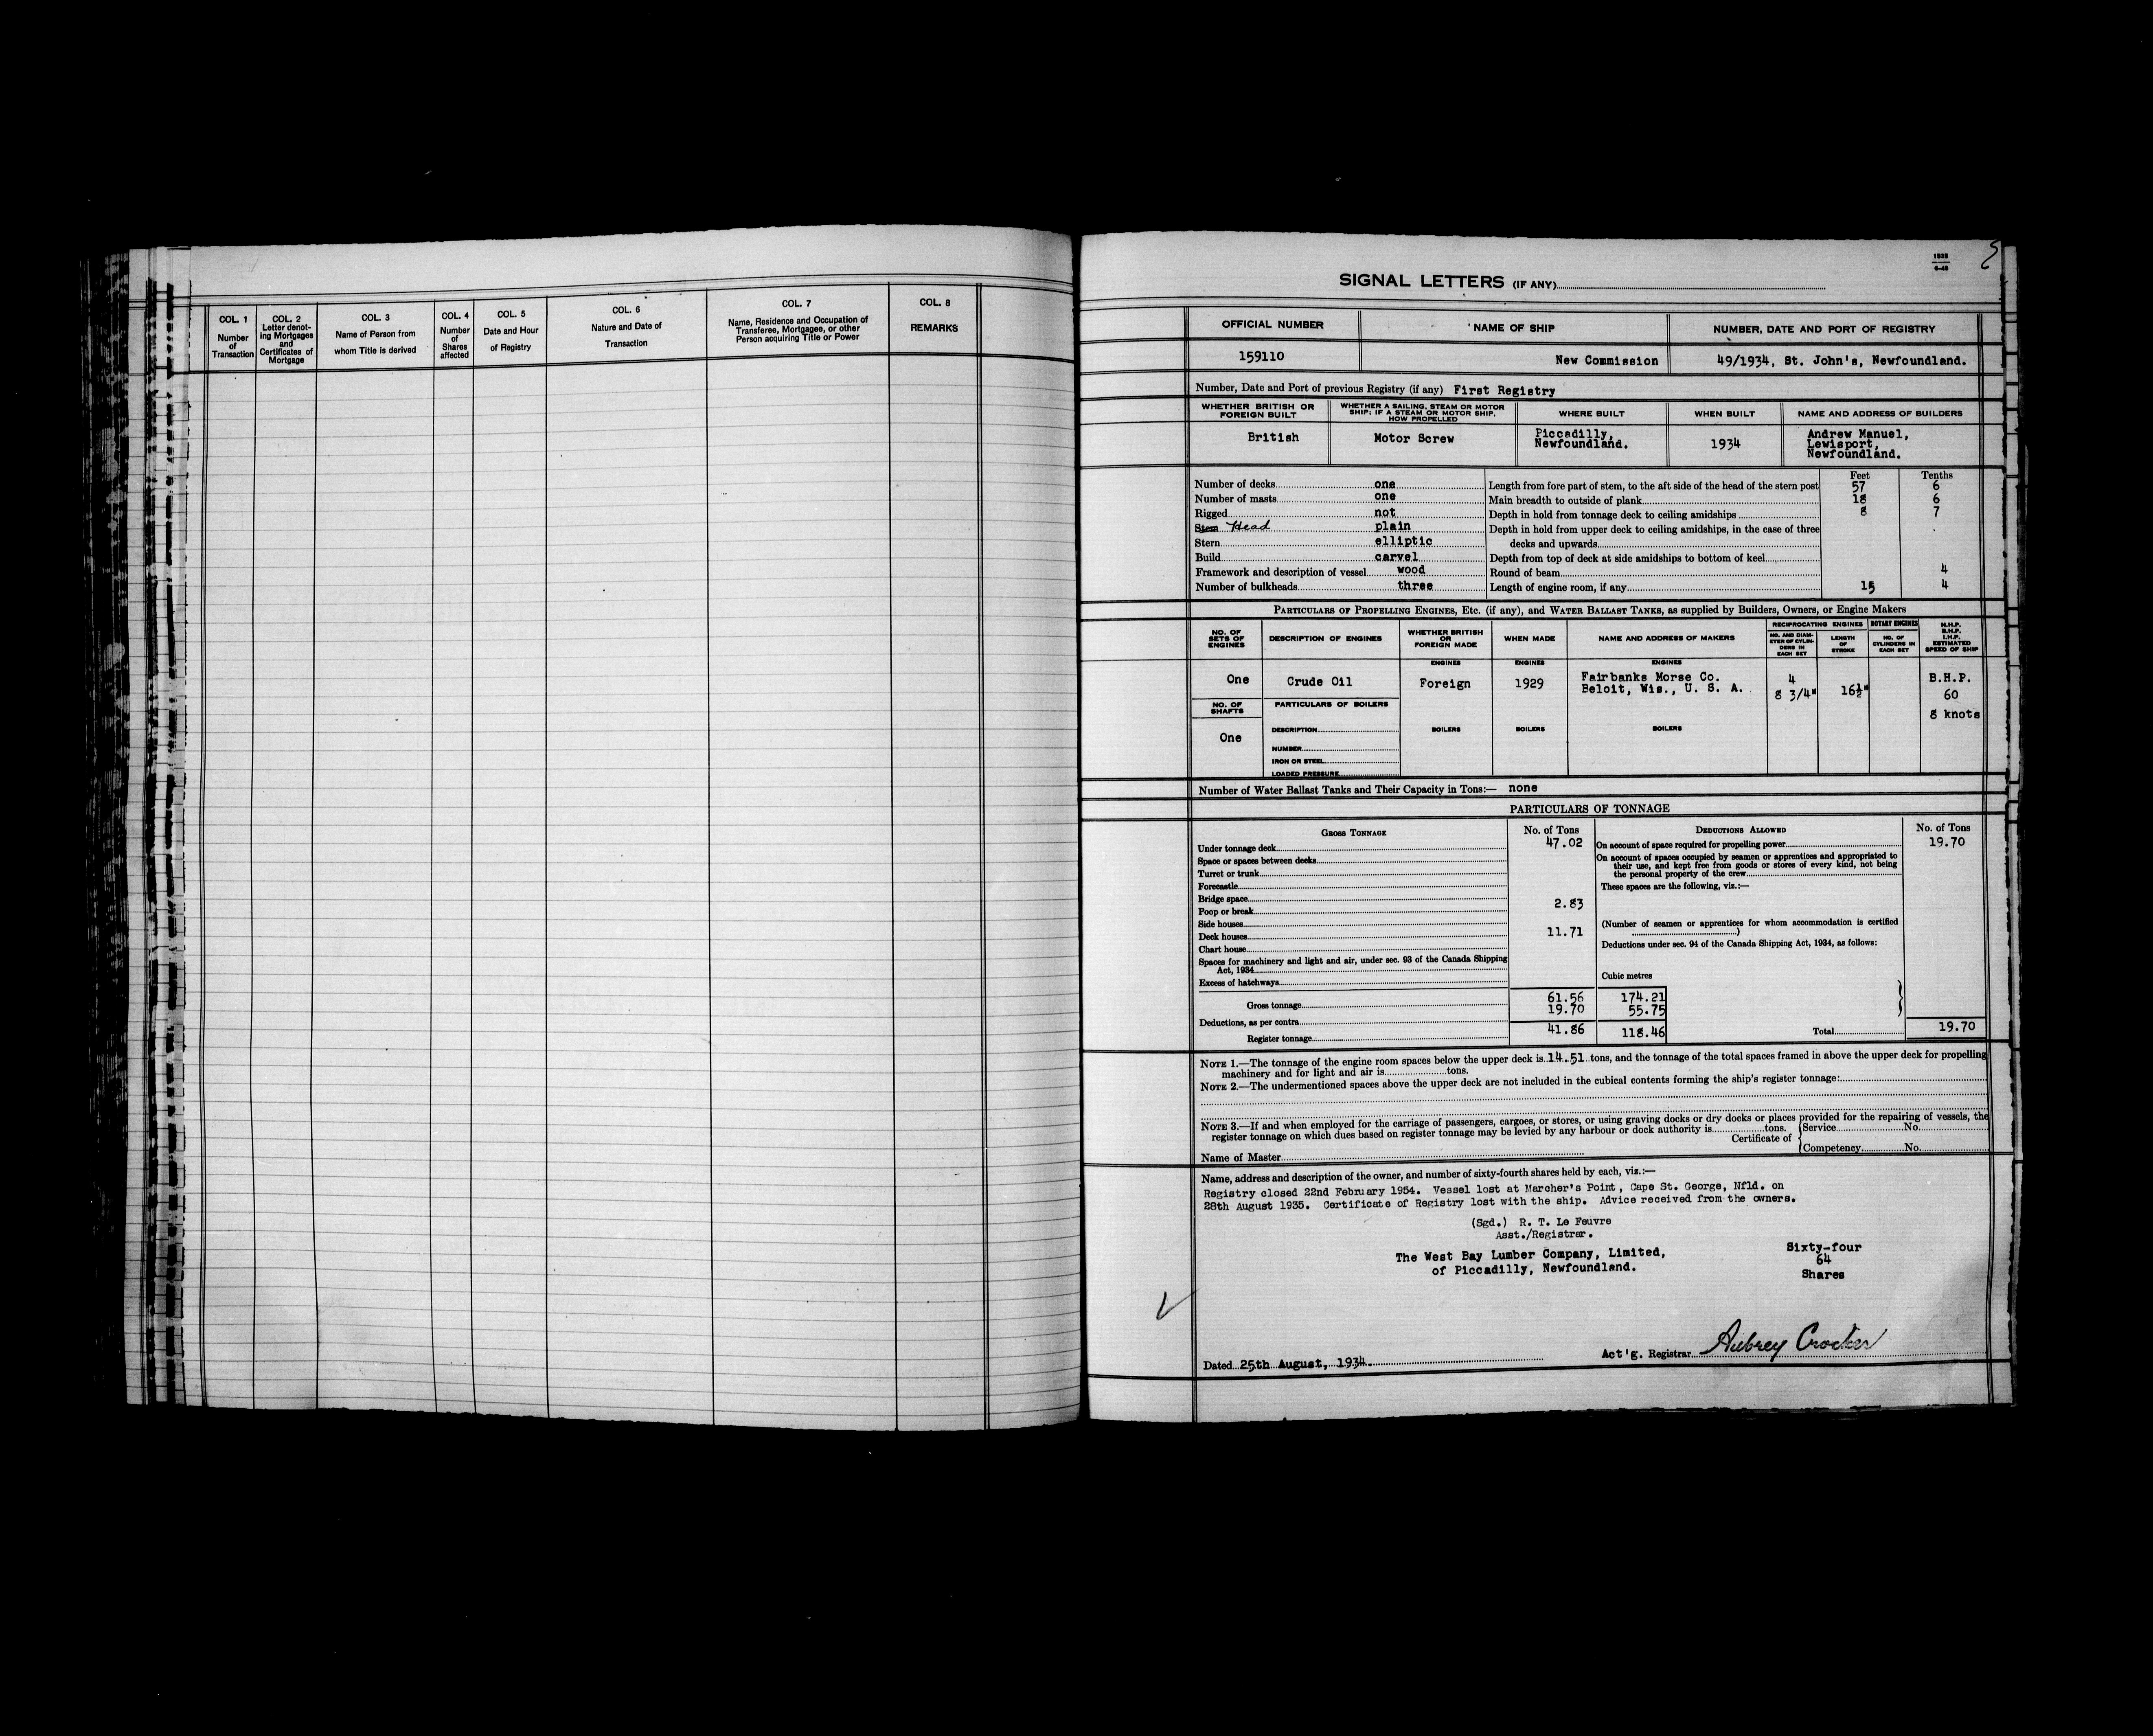 COL. 1
Number
of
Transaction
COL. 2
Letter denot-
ing Mortgages
and
Certificates of
Mortgage
COL. 3
Name of Person from
whom Title is derived
COL. 4
Number
of
Shares
affected
COL. 5
Date and Hour
of Registry
COL. 6
Nature and Date of
Transaction
COL. 7
Name, Residence and Occupation of
Transferee, Mortgagee, or other
Person acquiring Title or Power
COL. 8
REMARKS
5
SIGNAL LETTERS (IF ANY)
OFFICIAL NUMBER
NAME OF SHIP
NUMBER, DATE AND PORT OF REGISTRY
159110
New Commission
49/1934, St. John's, Newfoundland.
Number, Date and Port of previous Registry (if any) First Registry
WHETHER BRITISH OR
FOREIGN BUILT
WHETHER A SAILING, STEAM OR MOTOR
SHIP: IF A STEAM OR MOTOR SHIP,
HOW PROPELLED
WHERE BUILT
WHEN BUILT
NAME AND ADDRESS OF BUILDERS
British
Motor Screw
Piccadilly,
Newfoundland.
1934
Andrew Manuel,
Lewisport,
Newfoundland.
Feet Tenths
Number of decks one
Length from fore part of stem, to the aft side of the head of the stern post 57 6
Number of masts one
Main breadth to outside of plank 18 6
Rigged not
Depth in hold from tonnage deck to ceiling amidships 8 7
Stem Head plain
Depth in hold from upper deck to ceiling amidships, in the case of three
Stern elliptic
decks and upwards
Build carvel
Depth from top of deck at side amidships to bottom of keel
Framework and description of vessel wood
Round of beam 4
Number of bulkheads three
Length of engine room, if any 15 4
PARTICULARS OF PROPELLING ENGINES, ETC. (if any), and WATER BALLAST TANKS, as supplied by Builders, Owners, or Engine Makers
NO. OF
SETS OF
ENGINES
DESCRIPTION OF ENGINES
WHETHER BRITISH
OR
FOREIGN MADE
WHEN MADE
NAME AND ADDRESS OF MAKERS
RECIPROCATING ENGINES
NO. AND DIAM-
ETER OF CYLIN-
DERS IN
EACH SET
LENGTH
OF
STROKE
ROTARY ENGINES
NO. OF
CYLINDERS IN
EACH SET
N.H.P.
B.H.P.
I.H.P.
ESTIMATED
SPEED OF SHIP
ENGINES
ENGINES
ENGINES
One
Crude Oil
Foreign
1929
Fairbanks Morse Co.
Beloit, Wis., U. S. A.
4
8 3/4"
16½"
B.H.P.
60
8 knots
NO. OF
SHAFTS
PARTICULARS OF BOILERS
One
DESCRIPTION
BOILERS
BOILERS
BOILERS
NUMBER
IRON OR STEEL
LOADED PRESSURE
Number of Water Ballast Tanks and Their Capacity in Tons:— none
PARTICULARS OF TONNAGE
GROSS TONNAGE
No. of Tons
DEDUCTIONS ALLOWED
No. of Tons
Under tonnage deck 47.02
Space or spaces between decks
Turret or trunk
Forecastle
Bridge space
2.83
Poop or break
Side houses
11.71
Deck houses
Chart house
Spaces for machinery and light and air, under sec. 93 of the Canada Shipping
Act, 1934
Excess of hatchways
On account of space required for propelling power 19.70
On account of spaces occupied by seamen or apprentices and appropriated to
their use, and kept free from goods or stores of every kind, not being
the personal property of the crew
These spaces are the following, viz.:—
(Number of seamen or apprentices for whom accommodation is certified
)
Deductions under sec. 94 of the Canada Shipping Act, 1934, as follows:
Cubic metres
Gross tonnage 61.56 174.21
Deductions, as per contra 19.70 55.75
Register tonnage 41.86 118.46
Total 19.70
NOTE 1.—The tonnage of the engine room spaces below the upper deck is 14.51 tons, and the tonnage of the total spaces framed in above the upper deck for propelling
machinery and for light and air is tons.
NOTE 2.—The undermentioned spaces above the upper deck are not included in the cubical contents forming the ship's register tonnage:
NOTE 3.—If and when employed for the carriage of passengers, cargoes, or stores, or using graving docks or dry docks or places provided for the repairing of vessels, the
register tonnage on which dues based on register tonnage may be levied by any harbour or dock authority is tons.
Certificate of
Service No.
Competency No.
Name of Master
Name, address and description of the owner, and number of sixty-fourth shares held by each, viz.:—
Registry closed 22nd February 1954. Vessel lost at Marcher's Point, Cape St. George, Nfld. on
28th August 1935. Certificate of Registry lost with the ship. Advice received from the owners.
(Sgd.) R. T. Le Feuvre
Asst./Registrar.
The West Bay Lumber Company, Limited,
of Piccadilly, Newfoundland.
Sixty-four
64
Shares
Dated 25th August, 1934.
Act'g. Registrar Aubrey Crocker